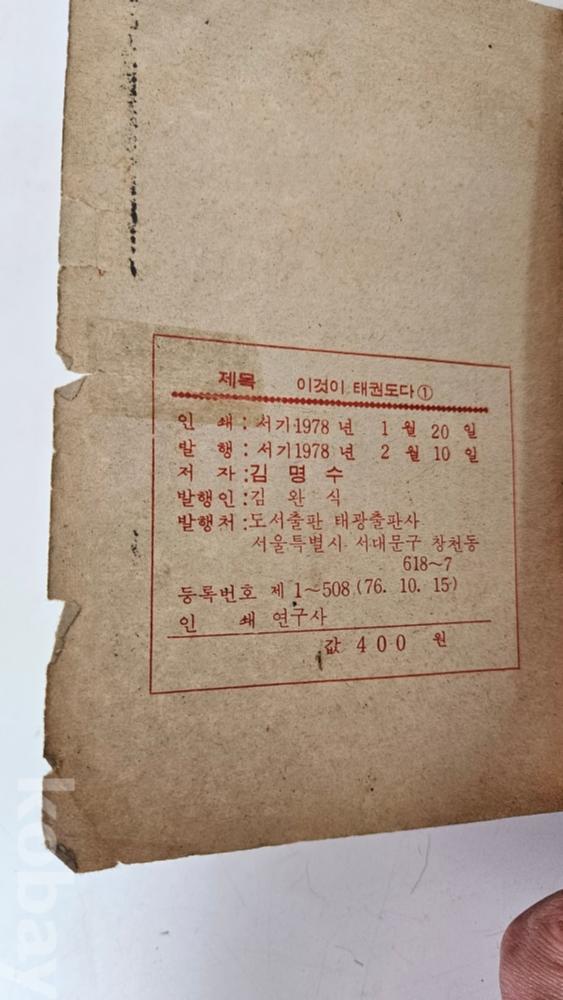 제목 이것이 태권도다①
인 쇄 : 서기1978 년 1 월 20 일
발 행 : 서기1978 년 2 월 10 일
저 자 : 김 명 수
발행인 : 김 완 식
발행처 : 도서출판 태광출판사
서울특별시 서대문구 창천동
618~7
등록번호 제 1~508 (76. 10. 15)
인 쇄 연구사
값 400 원
kobay